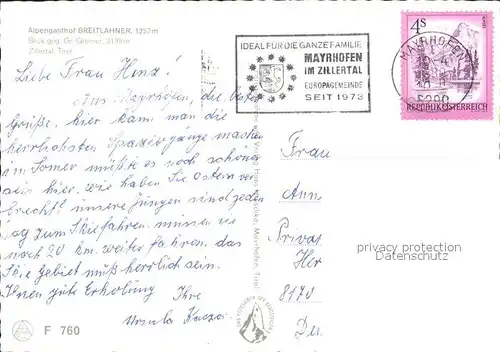 Alpengasthof BREITLAHNER, 1257m
Blick geg. Gr. Greiner, 3199m
Zillertal, Tirol
Liebe Frau Henz!
Aus Mayrhofen, die besten
Grüße. hier kann man die
herrlichsten Spaziergänge machen
im Somer müßte es noch schöner
sein hier. wie haben Sie Ostern ver
bracht? unsere Jungen sind jeden
Tag zum Skifahren. müssen sie
noch 20 km. weiter fahren. das
Skigebiet muß herrlich sein.
Ihnen gute Erholung
Ihre
Ursula
F 760
IDEAL FÜR DIE GANZE FAMILIE
MAYRHOFEN
IM ZILLERTAL
EUROPAGEMEINDE
SEIT 1973
MAYRHOFEN
6290
4S
REPUBLIK ÖSTERREICH
Frau
Ann
Privat
Her
8170
privacy protection
Watermark